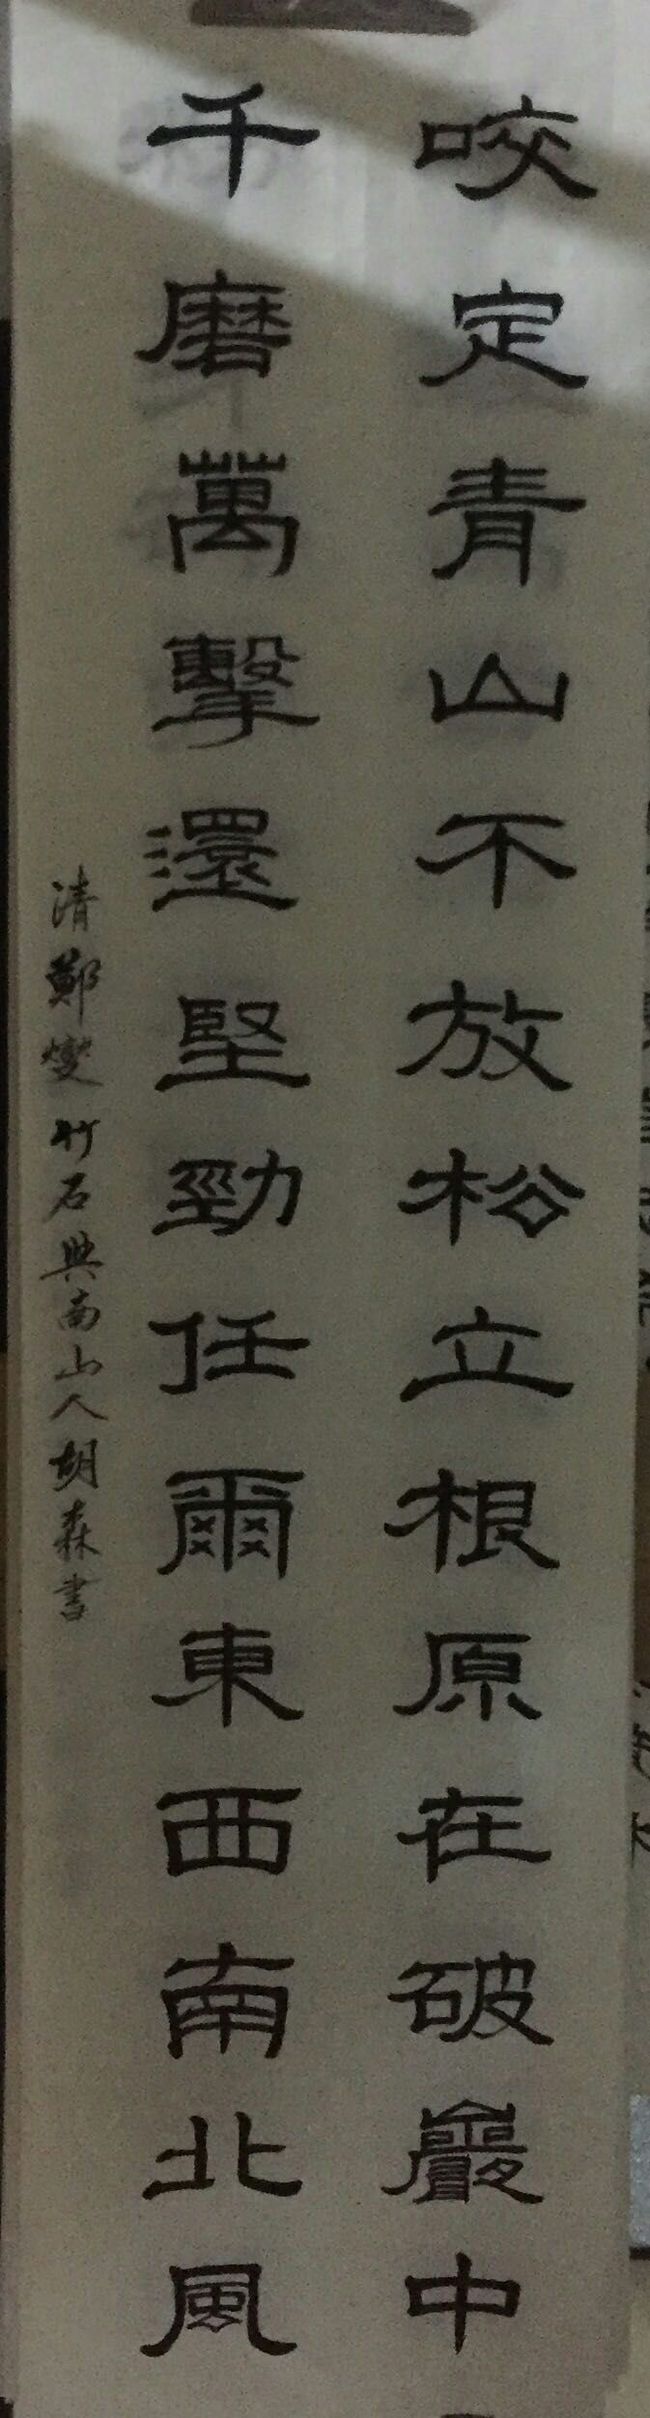 咬定青山不放松立根原在破巖中
千磨萬擊還堅勁任爾東西南北風
清鄭燮竹石典南山人胡森書